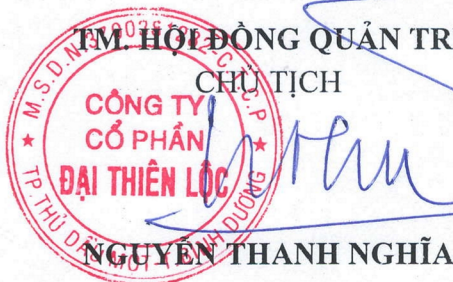 TM. HỘI ĐỒNG QUẢN TR
CHỦ TỊCH
CÔNG TY
CỔ PHẦN
ĐẠI THIÊN LỘC
TP. THỦ DẦU MỘT T. BÌNH DƯƠNG
NGUYỄN THANH NGHĨA